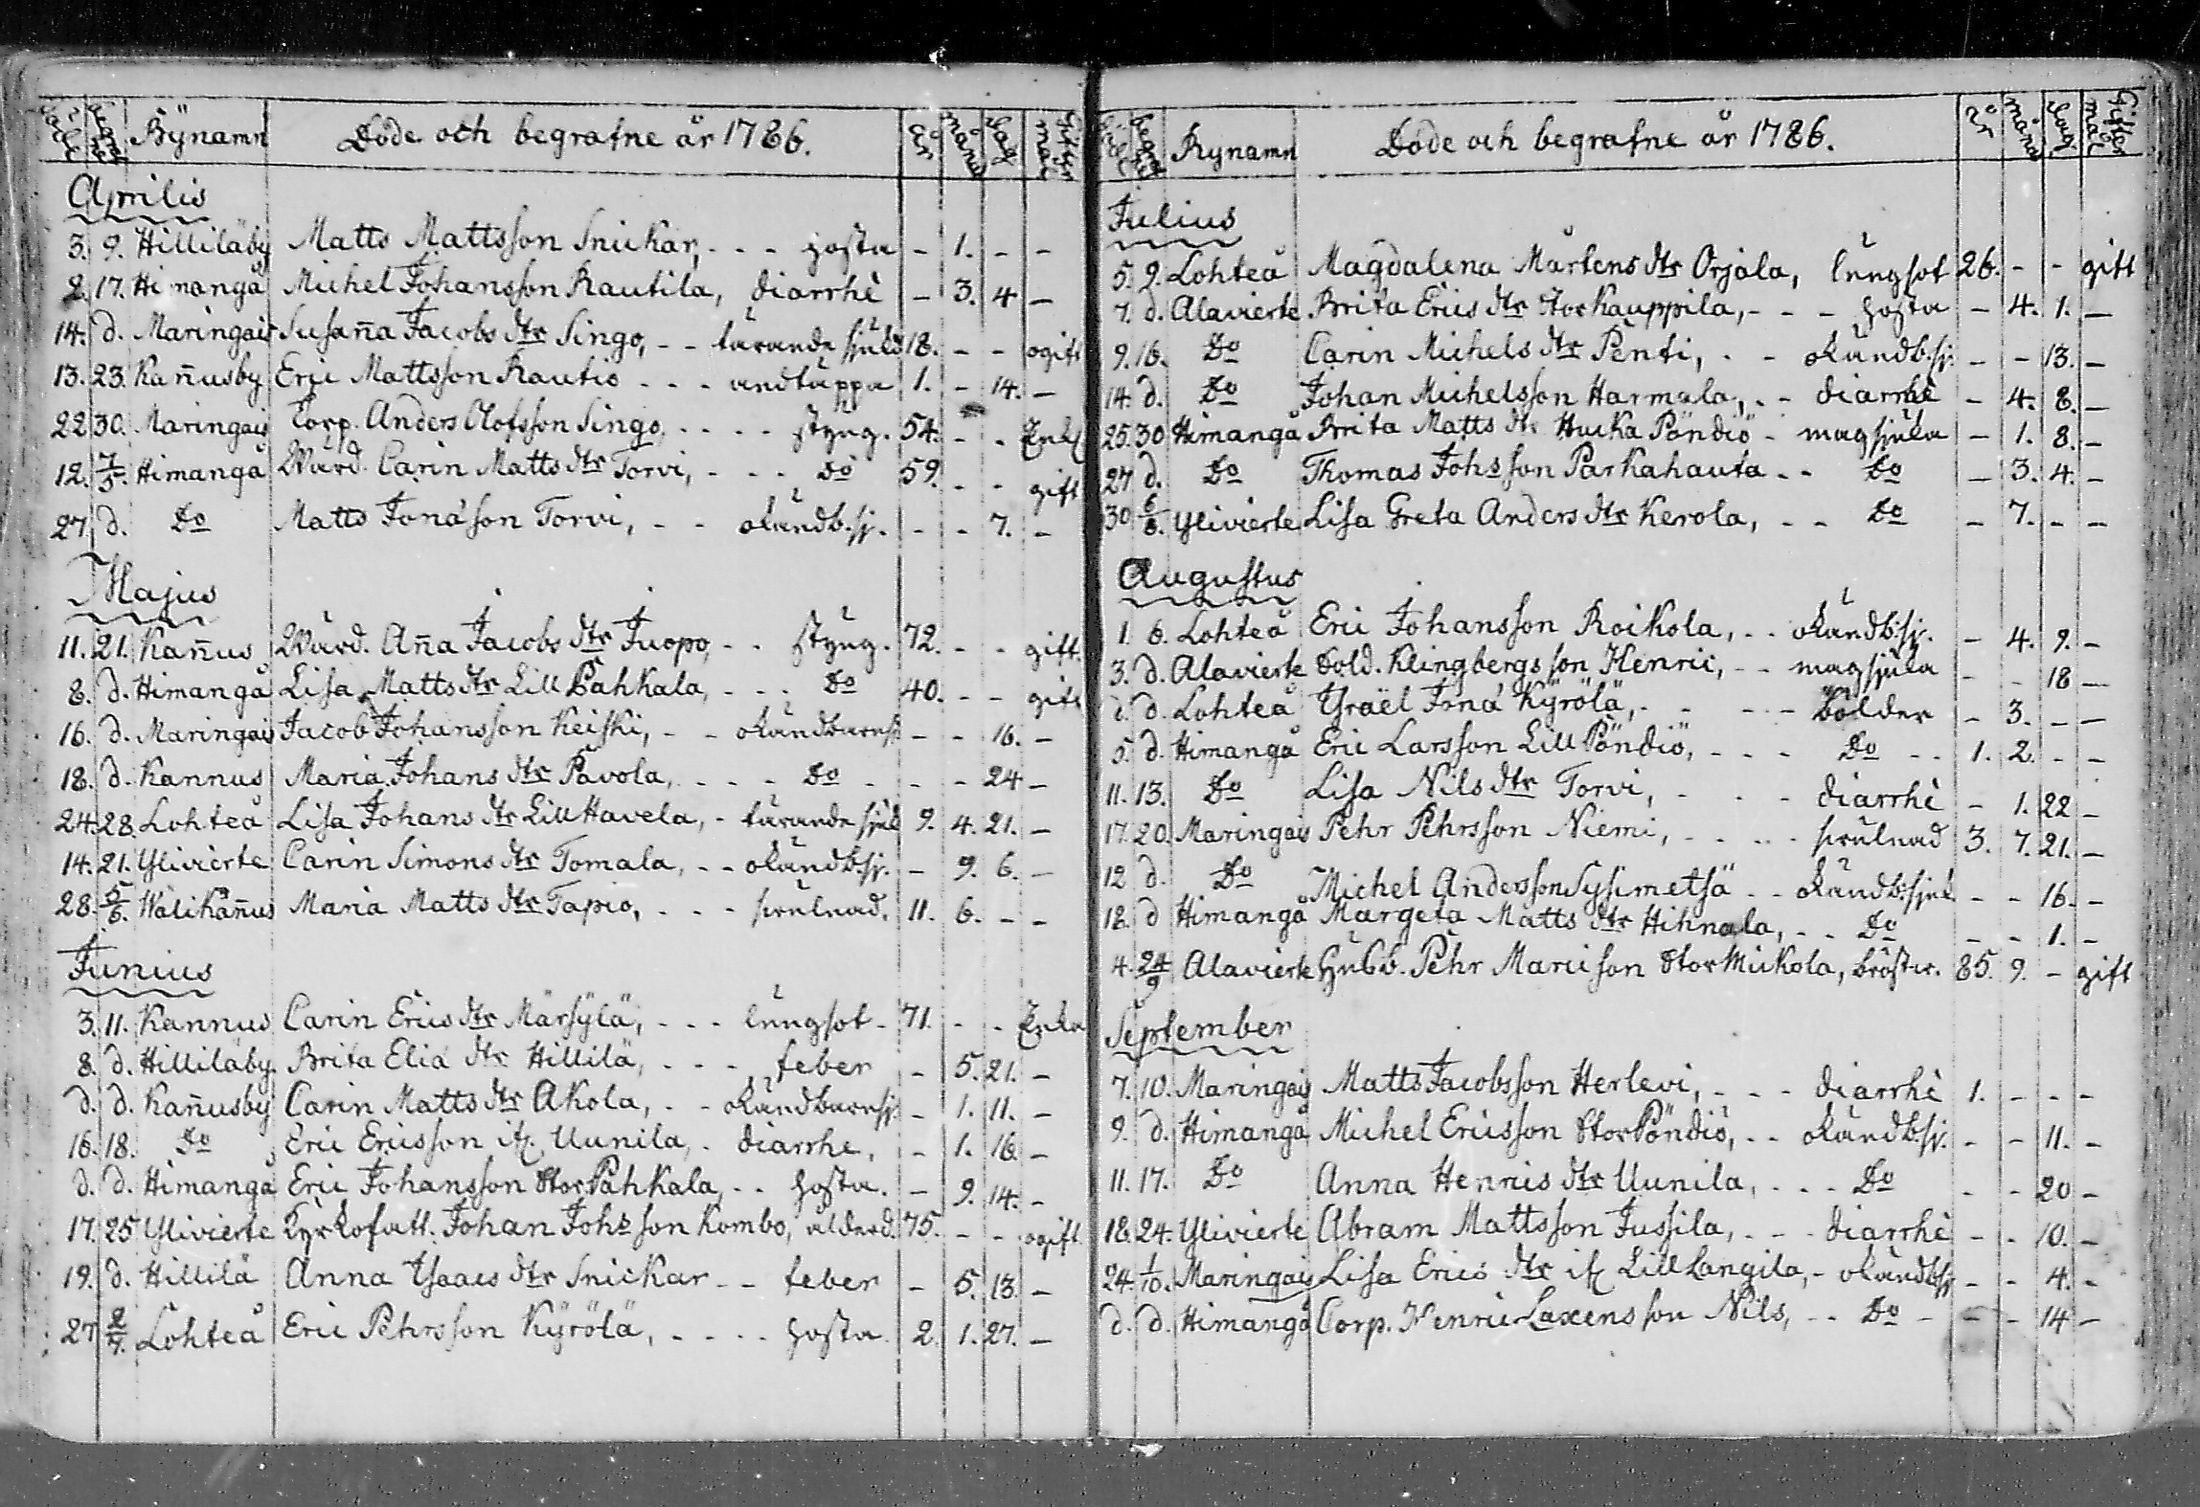 Bÿnamn Döde och begrafne år 1786. år månad dag Giftermål
Aprilis
3. 9. Hilliläby Matts Mattsson Snickar, - - - hosta - 1. - -
2. 17. Himangå Michel Johansson Rautila, diarrhè - 3. 4 -
14. d. Maringais Susan̄a Jacobs dtr Singo, - - tärande sjuka 18. - - ogift
13. 23. Kan̄usby Eric Mattsson Rautio - - - andtäppa 1. - 14. -
22 30. Maringais Corp. Anders Olofsson Singo, - - - - styng. 54. - - Enkl
12. 7/5. Himangå Wärd. Carin Matts dtr Torvi, - - - Do 59. - - gift
27. d. Do Matts Jonæson Torvi, - - okändb:sj. - - 7. -
Majus
11. 21. Kan̄us Wärd. An̄a Jacobs dtr Juopo, - - styng. 72. - - gift.
8. d. Himangå Lisa Matts dtr Lill Pahkala, - - - Do 40. - - gift
16. d. Maringais Jacob Johansson Keiski, - - okändbarnsj - - 16. -
18. d. Kannus Maria Johans dtr Pavola, - - - Do - - - 24 -
24. 28. Lohteå Lisa Johans dtr Lill Havela, - tärande sjuk 9. 4. 21. -
14. 21. Ylivierte Carin Simons dtr Tomala, - - okändb:sj. - 9. 6. -
28. 5/6. Wälikan̄us Maria Matts dtr Tapio, - - - svulnad. 11. 6. - -
Junius
3. 11. Kannus Carin Erics dtr Märsylä, - - - lungsot - 71. - - Enka
8. d. Hilliläby. Brita Eliæ dtr Hillilä, - - - feber - 5. 21. -
d. d. Kan̄usby Carin Matts dtr Akola, - - okändbarnsj - 1. 11. -
16. 18. Do Eric Ericsson Uunila, - diarrhe, - 1. 16. -
d. d. Himangå Eric Johansson Stor Pahkala, - - hosta. - 9. 14. -
17. 25 Ylivierte Kyrkofatt. Johan Johsson Kombo, ålderd. 75. - - ogift
19. d. Hillilä Anna Ysaacs dtr Snickar - - feber - 5. 13. -
27 2/7. Lohteå Eric Pehrsson Kÿrölä, - - - - hosta. 2. 1. 27. -
Bynamn Döde och begrafne år 1786. år månad dag Giftermål
Julius
5. 9. Lohteå Magdalena Mårtens dtr Orjala, lungsot 26. - - gift
7. d. Alavierte Brita Erics dtr Stor Kauppila, - - - hosta - 4. 1. -
9. 16. Do Carin Michels dtr Penti, - - okändb:sj. - - 13. -
14. d. Do Johan Michelsson Harmala, - - diarrhè - 4. 8. -
25. 30 Himangå Brita Matts dtr Huka Pöndiö - magsjuka - 1. 8. -
27 d. Do Thomas Johsson Parkahauta - - Do - 3. 4. -
30 6/8. Ylivierte Lisa Greta Anders dtr Kerola, - - Do - 7. - -
Augustus
1. 6. Lohteå Eric Johansson Roikola, - - okändb:sj. - 4. 9. -
3. d. Alavierte Sold. Klingbergs son Henric, - - magsjuka - - 18 -
d. d. Lohteå Ysraël Jonæ Kÿrölä, - - - - Bölder - 3. - -
5. d. Himangå Eric Larsson Lill Pöndiö, - - - Do - - 1. 2. - -
11. 13. Do Lisa Nils dtr Torvi, - - - diarrhè - 1. 22 -
17. 20. Maringais Pehr Pehrsson Niemi, - - - - svulnad 3. 7. 21. -
12 d. Do Michel Andersson Sysimetsä - - okändb:sjuk - - 16. -
18. d Himangå Margeta Matts dtr Hihnala, - - Do - - 1. -
4. 24/9 Alavierte Gubb. Pehr Marcison Stor Mickola, bröstv. 85. 9. - gift
September
7. 10. Maringais Matts Jacobsson Herlevi, - - - diarrhè 1. - - -
9. d. Himangå Michel Ericsson Stor Pöndiö, - - okändb:sj. - - 11. -
11. 17. Do Anna Henrics dtr Uunila, - - - Do - - 20 -
18. 24. Ylivierte Abram Mattsson Jussila, - - - diarrhè - - 10. -
24. 1/10. Maringais Lisa Erics dtr Lill Langila, - okändb:sj - - 4. -
d. d. Himangå Corp. Henric Laxens son Nils, - - Do - - - 14 -